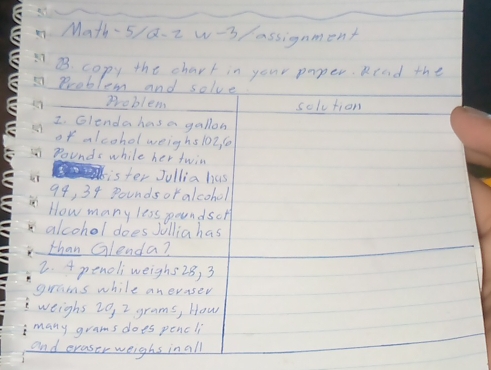 Math-5/Q-2 W-3/assignment
B. copy the chart in your paper. Read the
Problem and solve.
Problem
solution
1. Glenda has a gallon
of alcohol weighs 102,6
Pounds while her twin
sister Jullia has
94,34 Pounds of alcohol
How many less pounds of
alcohol does Jullia has
than Glenda?
2. A pencli weighs 28,3
grams while an eraser
weighs 20,2 grams, How
many grams does pencli
and eraser weighs in all